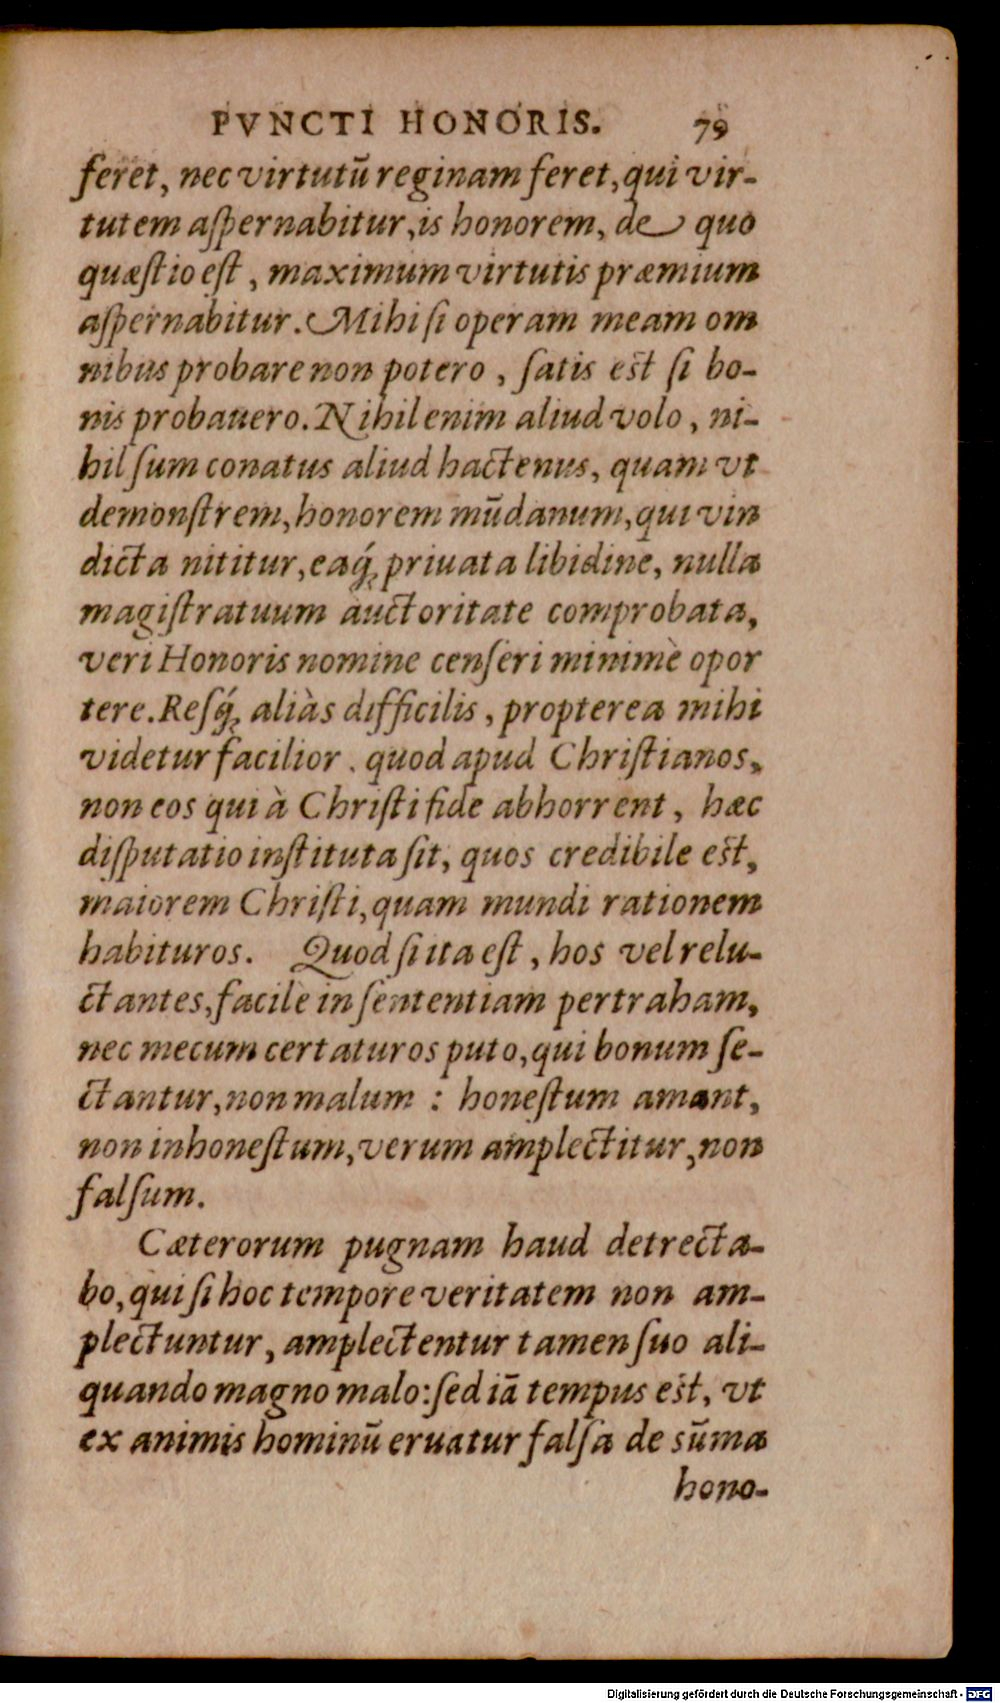 PVNCTI HONORIS. 79
feret, nec virtutū reginam feret, qui vir-
tutem aſpernabitur, is honorem, de quo
quæſtio eſt, maximum virtutis præmium
aſpernabitur. Mihi ſi operam meam om
nibus probare non potero, ſatis eſt ſi bo-
nis probauero. Nihil enim aliud volo, ni-
hil ſum conatus aliud hactenus, quam vt
demonſtrem, honorem mūdanum, qui vin
dicta nititur, eaq́; priuata libidine, nulla
magiſtratuum auctoritate comprobata,
veri Honoris nomine cenſeri minimè opor
tere. Reſq́; aliàs difficilis, propterea mihi
videtur facilior. quod apud Chriſtianos,
non eos qui à Chriſti fide abhorrent, hæc
diſputatio inſtituta ſit, quos credibile eſt,
maiorem Chriſti, quam mundi rationem
habituros. Quod ſi ita eſt, hos vel relu-
ctantes, facile in ſententiam pertraham,
nec mecum certaturos puto, qui bonum ſe-
ctantur, non malum : honeſtum amant,
non inhoneſtum, verum amplectitur, non
falſum.
Cæterorum pugnam haud detrecta-
bo, qui ſi hoc tempore veritatem non am-
plectuntur, amplectentur tamen ſuo ali-
quando magno malo: ſed iā tempus eſt, vt
ex animis hominū eruatur falſa de sūma
hono-
Digitalisierung gefördert durch die Deutsche Forschungsgemeinschaft - DFG